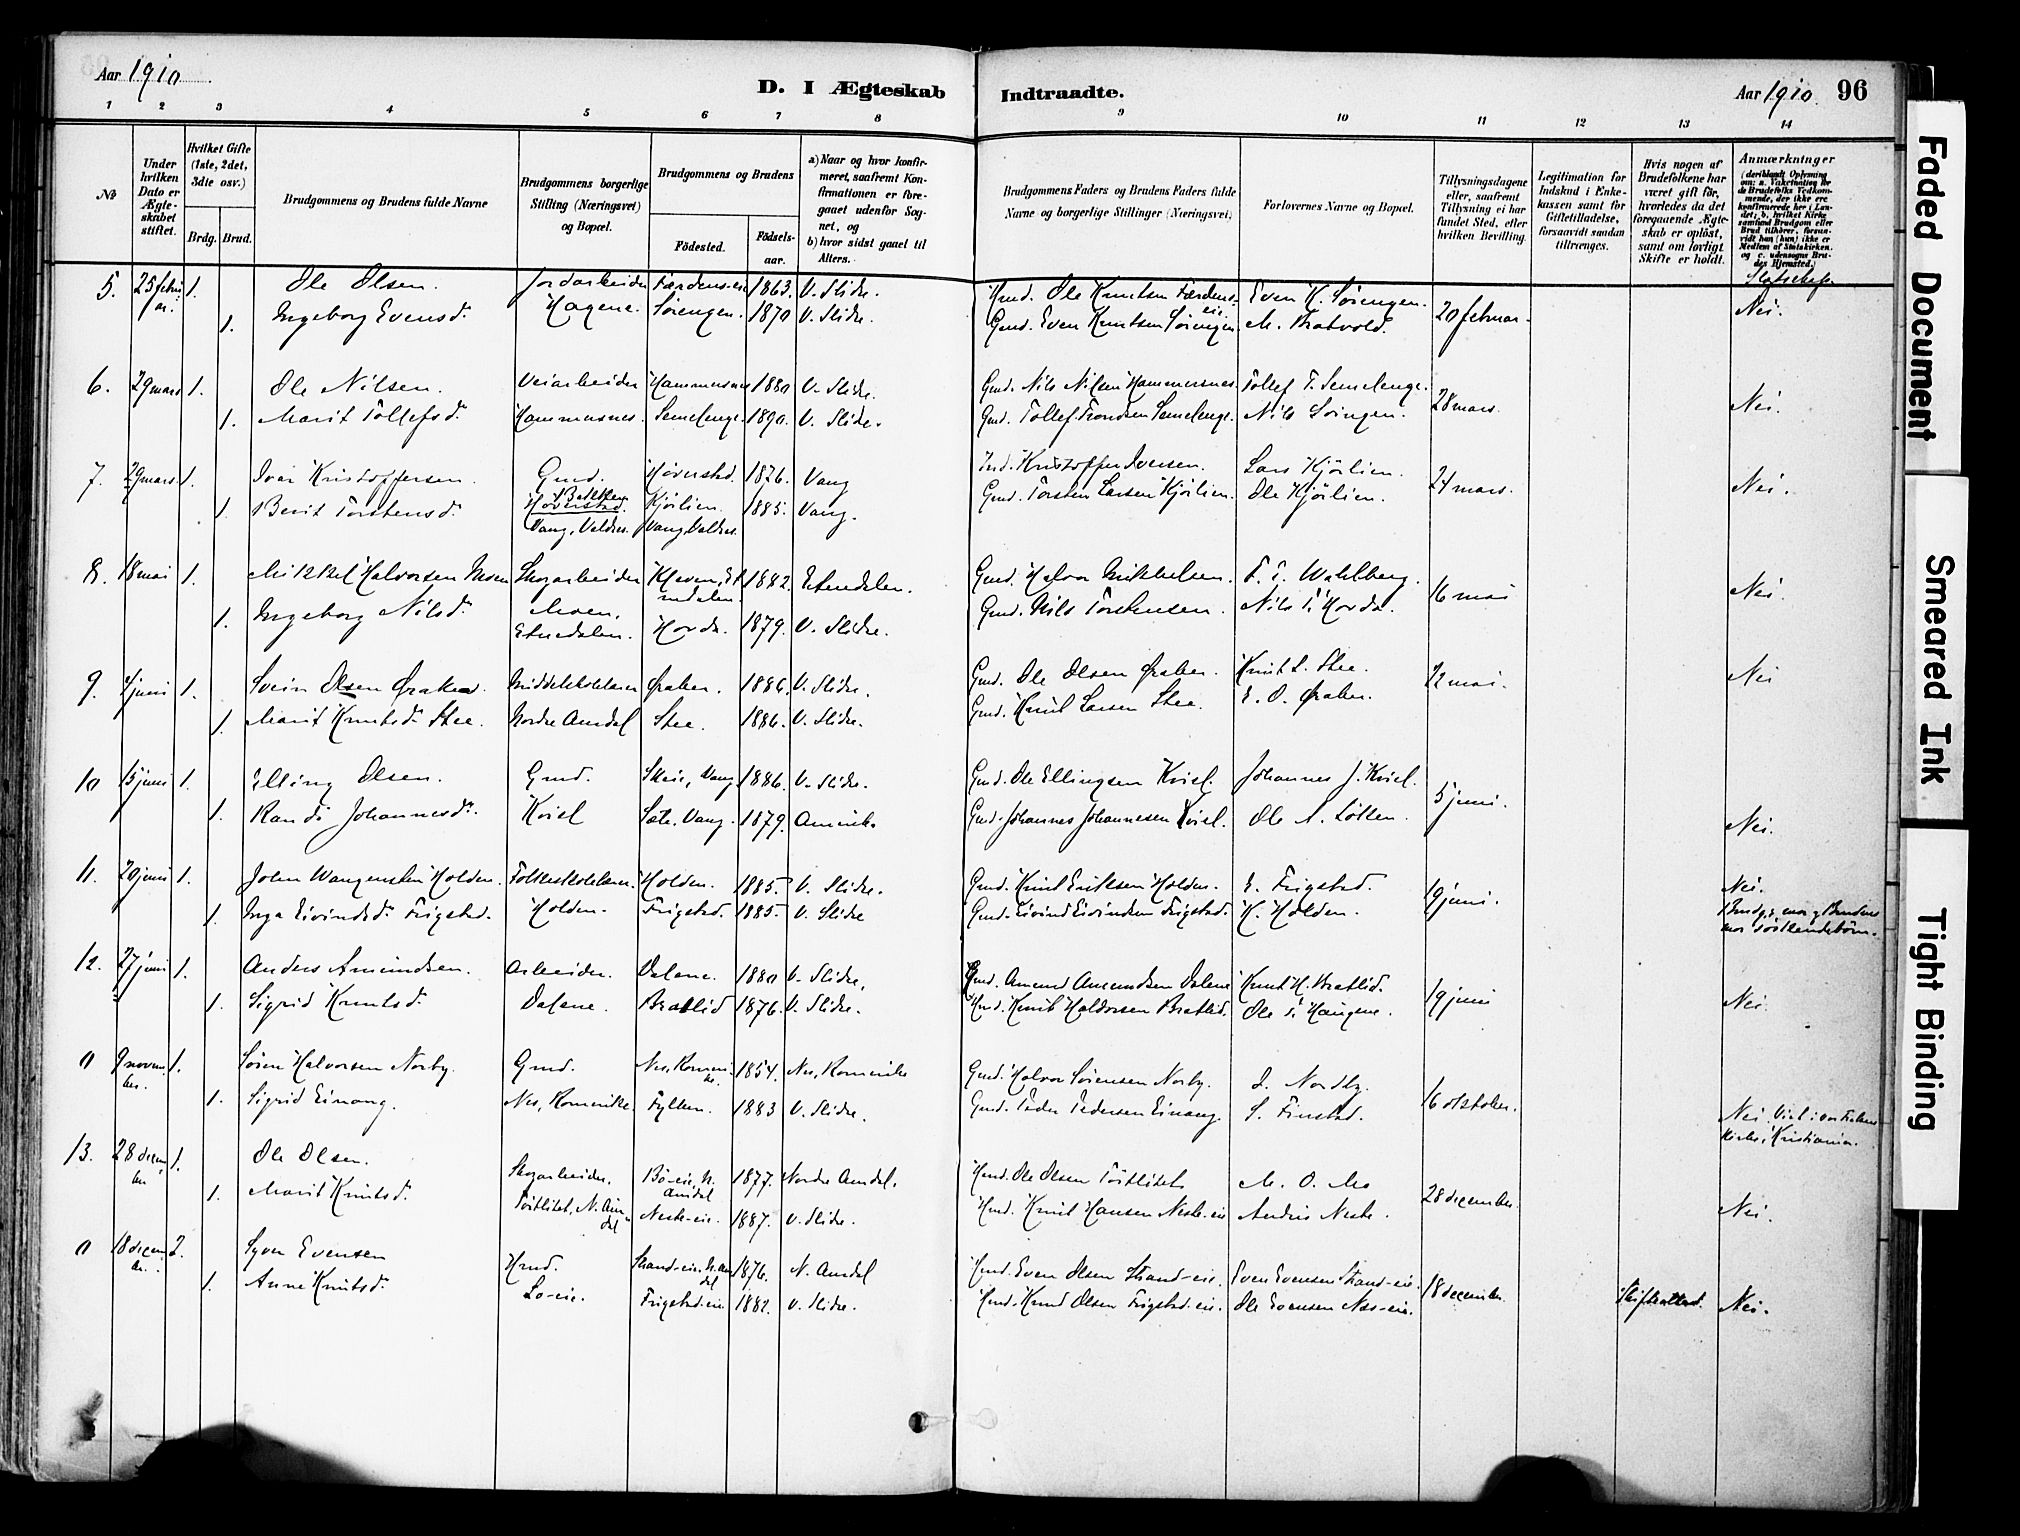 Aar 1910
D. I Ægteskab
Indtraadte.
Aar 1910. 96
1 2 3 4 5 6 7 8 9 10 11 12 13 14
№
Under hvilken Dato er Ægteskabet stiftet.
Hvilket Gifte (1ste, 2det, 3die osv.)
Brdg. Brud.
Brudgommens og Brudens fulde Navne
Brudgommens borgerlige Stilling (Næringsvei) og Bopæl.
Brudgommens og Brudens
Födested. Födselsaar.
a) Naar og hvor konfirmeret, saafremt Konfirmationen er foregaaet udenfor Sognet, og
b) hvor sidst gaaet til Alters.
Brudgommens Faders og Brudens Faders fulde Navne og borgerlige Stillinger (Næringsvei)
Forlovernes Navne og Bopæl.
Tillysningsdagene eller, saafremt Tillysning ei har fundet Sted, efter hvilken Bevilling.
Legitimation for Indskud i Enkekassen samt for Giftetilladelse, forsaavidt saadan tiltrænges.
Hvis nogen af Brudefolkene har været gift för, hvorledes da det foregaaende Ægteskab er oplöst, samt om lovligt Skifte er holdt.
Anmærkninger
5. 25 febru 1. Ole Olsen. Jordarbeider Færdens-eie 1863. V. Slidre. Hmd. Ole Knutsen Færdens-eie Even K. Sörengen. 20 februar. Nei.
1. Ingeborg Evensd. Hagene. Sörengen. 1870 V. Slidre. Gmd. Even Knutsen Sörengen M. Bratvold.
6. 29 mars 1. Ole Nilsen. Veiarbeider Hammersnes 1880 V. Slidre. Gmd. Nils Nilsen Hammersnes. Tollef T. Semelenge. 28 mars. Nei.
1. Marit Tollefsd. Hammersnes. Semelenge. 1890. V. Slidre. Gmd. Tollef Trondsen Semelenge. Nils Svingen.
7. 29 mars 1. Ivar Kristoffersen. Gmd. Höverstad. 1876. Vang Kristoffer Iversen. Lars Kjörlien. 24 mars. Nei.
1. Berit Torstensd. Höverstad. Kjörlien. 1885. Vang. Gmd. Torsten Larsen Kjörlien. Ole Kjörlien.
Vang, Valdres. Vang Valdres.
8. 18 mai 1. Mikkel Halvorsen Moen Skogarbeider Kleven, Etnedalen. 1882. Etnedalen. Gmd. Halvor Mikkelsen. T. T. Wahlberg. 16 mai Nei.
1. Ingeborg Nilsd. Moen, Etnedalen. Horda. 1879. V. Slidre. Gmd. Nils Torstensen. Nils T. Horda.
9. 4 juni 1. Svein Olsen Öraker. Middelskolelærer Öraker. 1886. V. Slidre. Gmd. Ole Olsen Öraker. Knut L. Stee. 22 mai. Nei
1. Marit Knutsd. Stee. Nordre Aurdal Stee. 1886. V. Slidre. Gmd. Knut Larsen Stee. E. O. Öraker.
10 15 juni 1. Elling Olsen. Gmd. Skeie, Vang 1886. V. Slidre. Gmd. Ole Ellingsen Kviel. Johannes J. Kviel. 5 juni.
1. Randi Johannesd. Kviel Sæte. Vang. 1879. Amerika Gmd. Johannes Johannesen Kviel. Ole A. Lökken. Nei.
11. 20 juni 1. John Wangensten Holden. Folkeskolelærer. Holden. 1885. V. Slidre. Gmd. Knut Eriksen Holden. E. Frigstad. 19 juni. Nei.
1. Inga Eivindsd. Frigstad. Holden. Frigstad. 1885. V. Slidre Gmd. Eivind Eivindsen Frigstad. K. Holden. Brudg.s mor og Brudens mor söskendebörn.
12. 27 juni 1. Anders Amundsen. Arbeider. Dalene. 1880 V. Slidre. Gmd. Amund Amundsen Dalene Knut H. Bratlid. 19 juni Nei.
1. Sigrid Knutsd. Dalene. Bratlid 1876. V. Slidre. Hmd. Knut Haldorsen Bratlid. Ole T. Haugene.
0 9 november. 1. Sören Halvorsen Norby. Gmd. Nes, Romerike. 1854. Nes, Romerike Gmd. Halvor Sörensen Norby. Nordby. 16 oktober.
1. Sigrid Einang. Nes, Romerike. Fylken. 1883 V. Slidre. Gmd. Peder Pedersen Einang. S. Finstad. Nei. Viet i vor Frelsers Kirke, Kristiania.
13. 28 decem ber 1. Ole Olsen. Skogarbeider. Bö-eie, N. Aurdal 1877. Nordre Aurdal. Hmd. Ole Olsen M. O. Mo 28 december. Nei.
1. Marit Knutsd. N. Aurdal Neste-eie. 1887. V. Slidre. Hmd. Knut Hansen Neste-eie Andris Neste.
0 18 decem ber. 2. Syver Evensen Hmd. Strand-eie. N. Aurdal 1876. N. Aurdal Hmd. Even Olsen Strand-eie. Even Evensen Strand-eie. 18 december. Skifteattest. Nei.
1. Anne Knutsd. Lo-eie. Frigstad-eie 1882. V. Slidre. Hmd. Knud Olsen Frigstad-eie. Ole Evensen Nes-eie.
Faded Document
Smeared Ink
Tight Binding